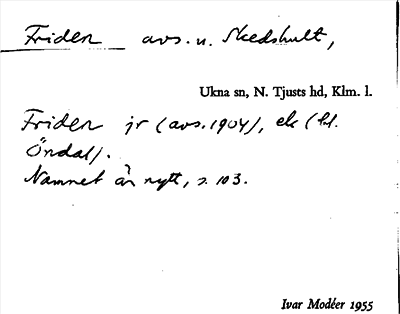 Friden avs. u. Skedshult,
Ukna sn, N. Tjusts hd, Klm. l.
Friden jr (avs. 1904), ek (hd.
Öndal).
Namnet är nytt, s. 103.
Ivar Modéer 1955